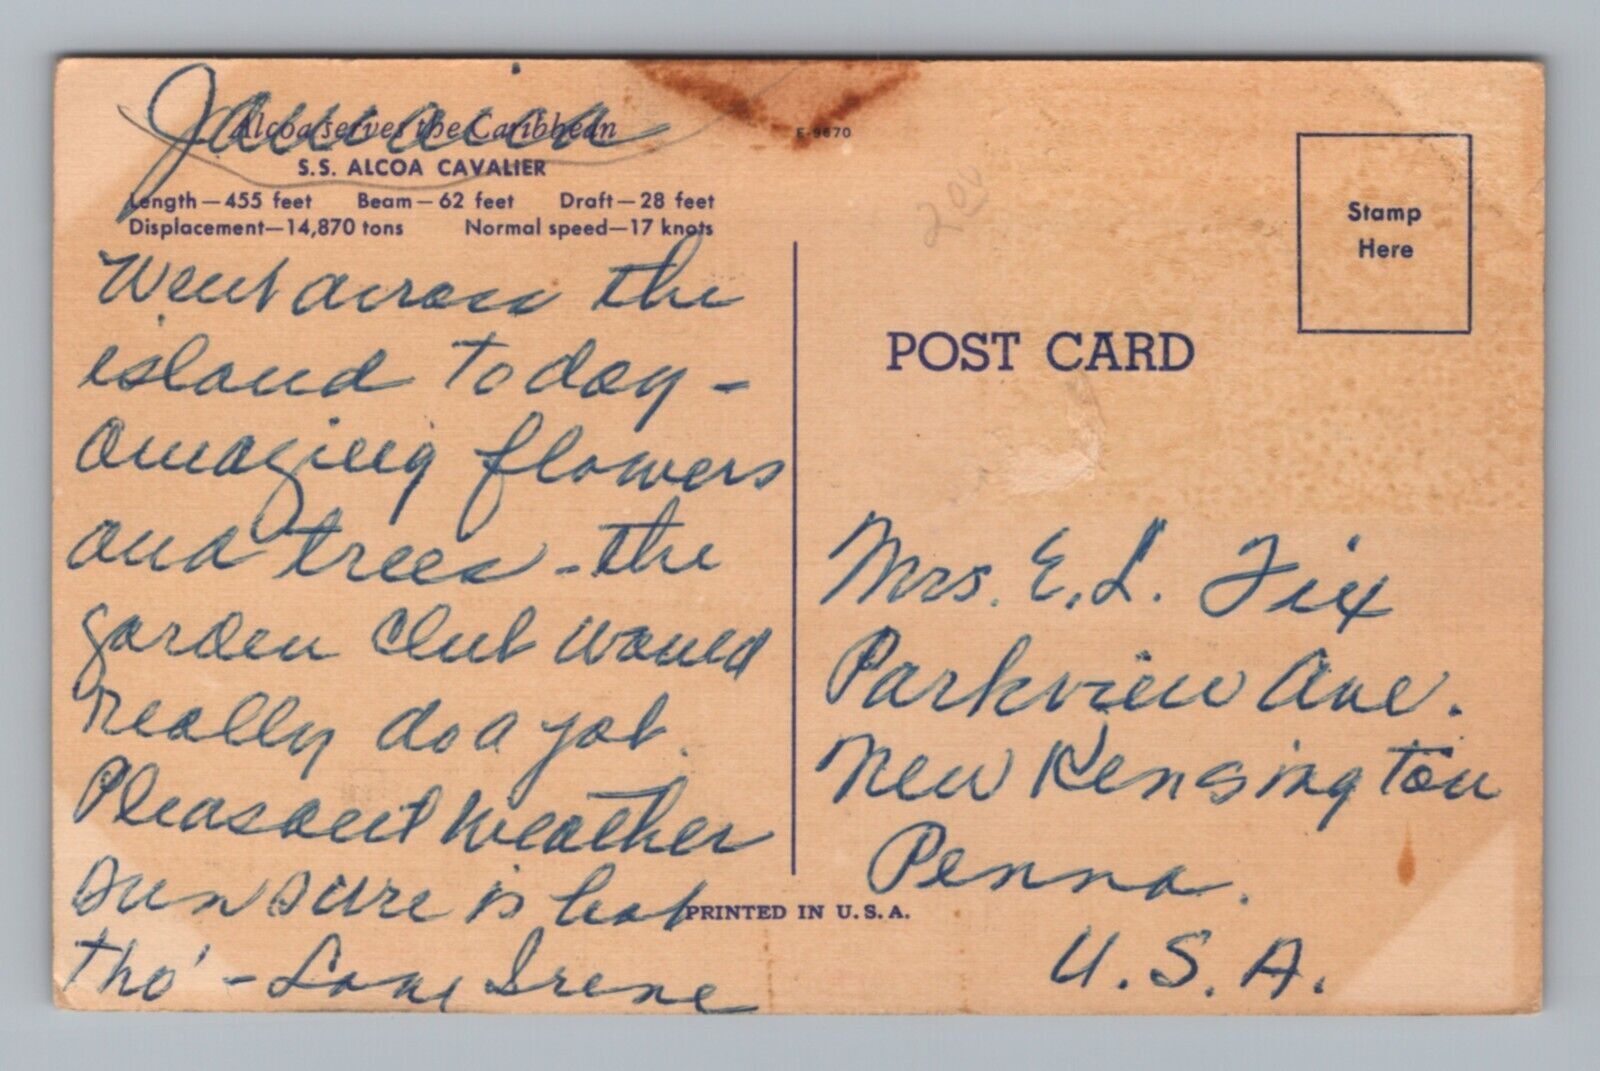 Jamaica
Alcoa serves the Caribbean
S.S. ALCOA CAVALIER
Length—455 feet Beam—62 feet Draft—28 feet
Displacement—14,870 tons Normal speed—17 knots
Went across the
island today -
amazing flowers
and trees - the
garden club would
really do a job.
Pleasant weather
sun sure is hot
tho' - Love Irene
E-9670
200
Stamp
Here
POST CARD
Mrs. E. L. Fix
Parkview Ave.
New Kensington
Penna.
U.S.A.
PRINTED IN U.S.A.